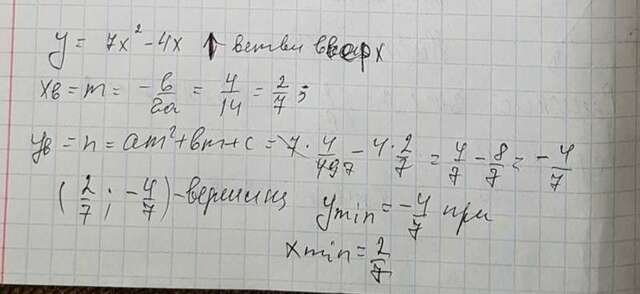 y = 7x² - 4x ↑ ветви вверх
xв = m = -в/2a = 4/14 = 2/7 ;
yв = n = am² + вm + c = 7 · 4/49 7 - 4 · 2/7 = 4/7 - 8/7 = -4/7
(2/7 ; -4/7) - вершина ymin = -4/7 при
xmin = 2/7